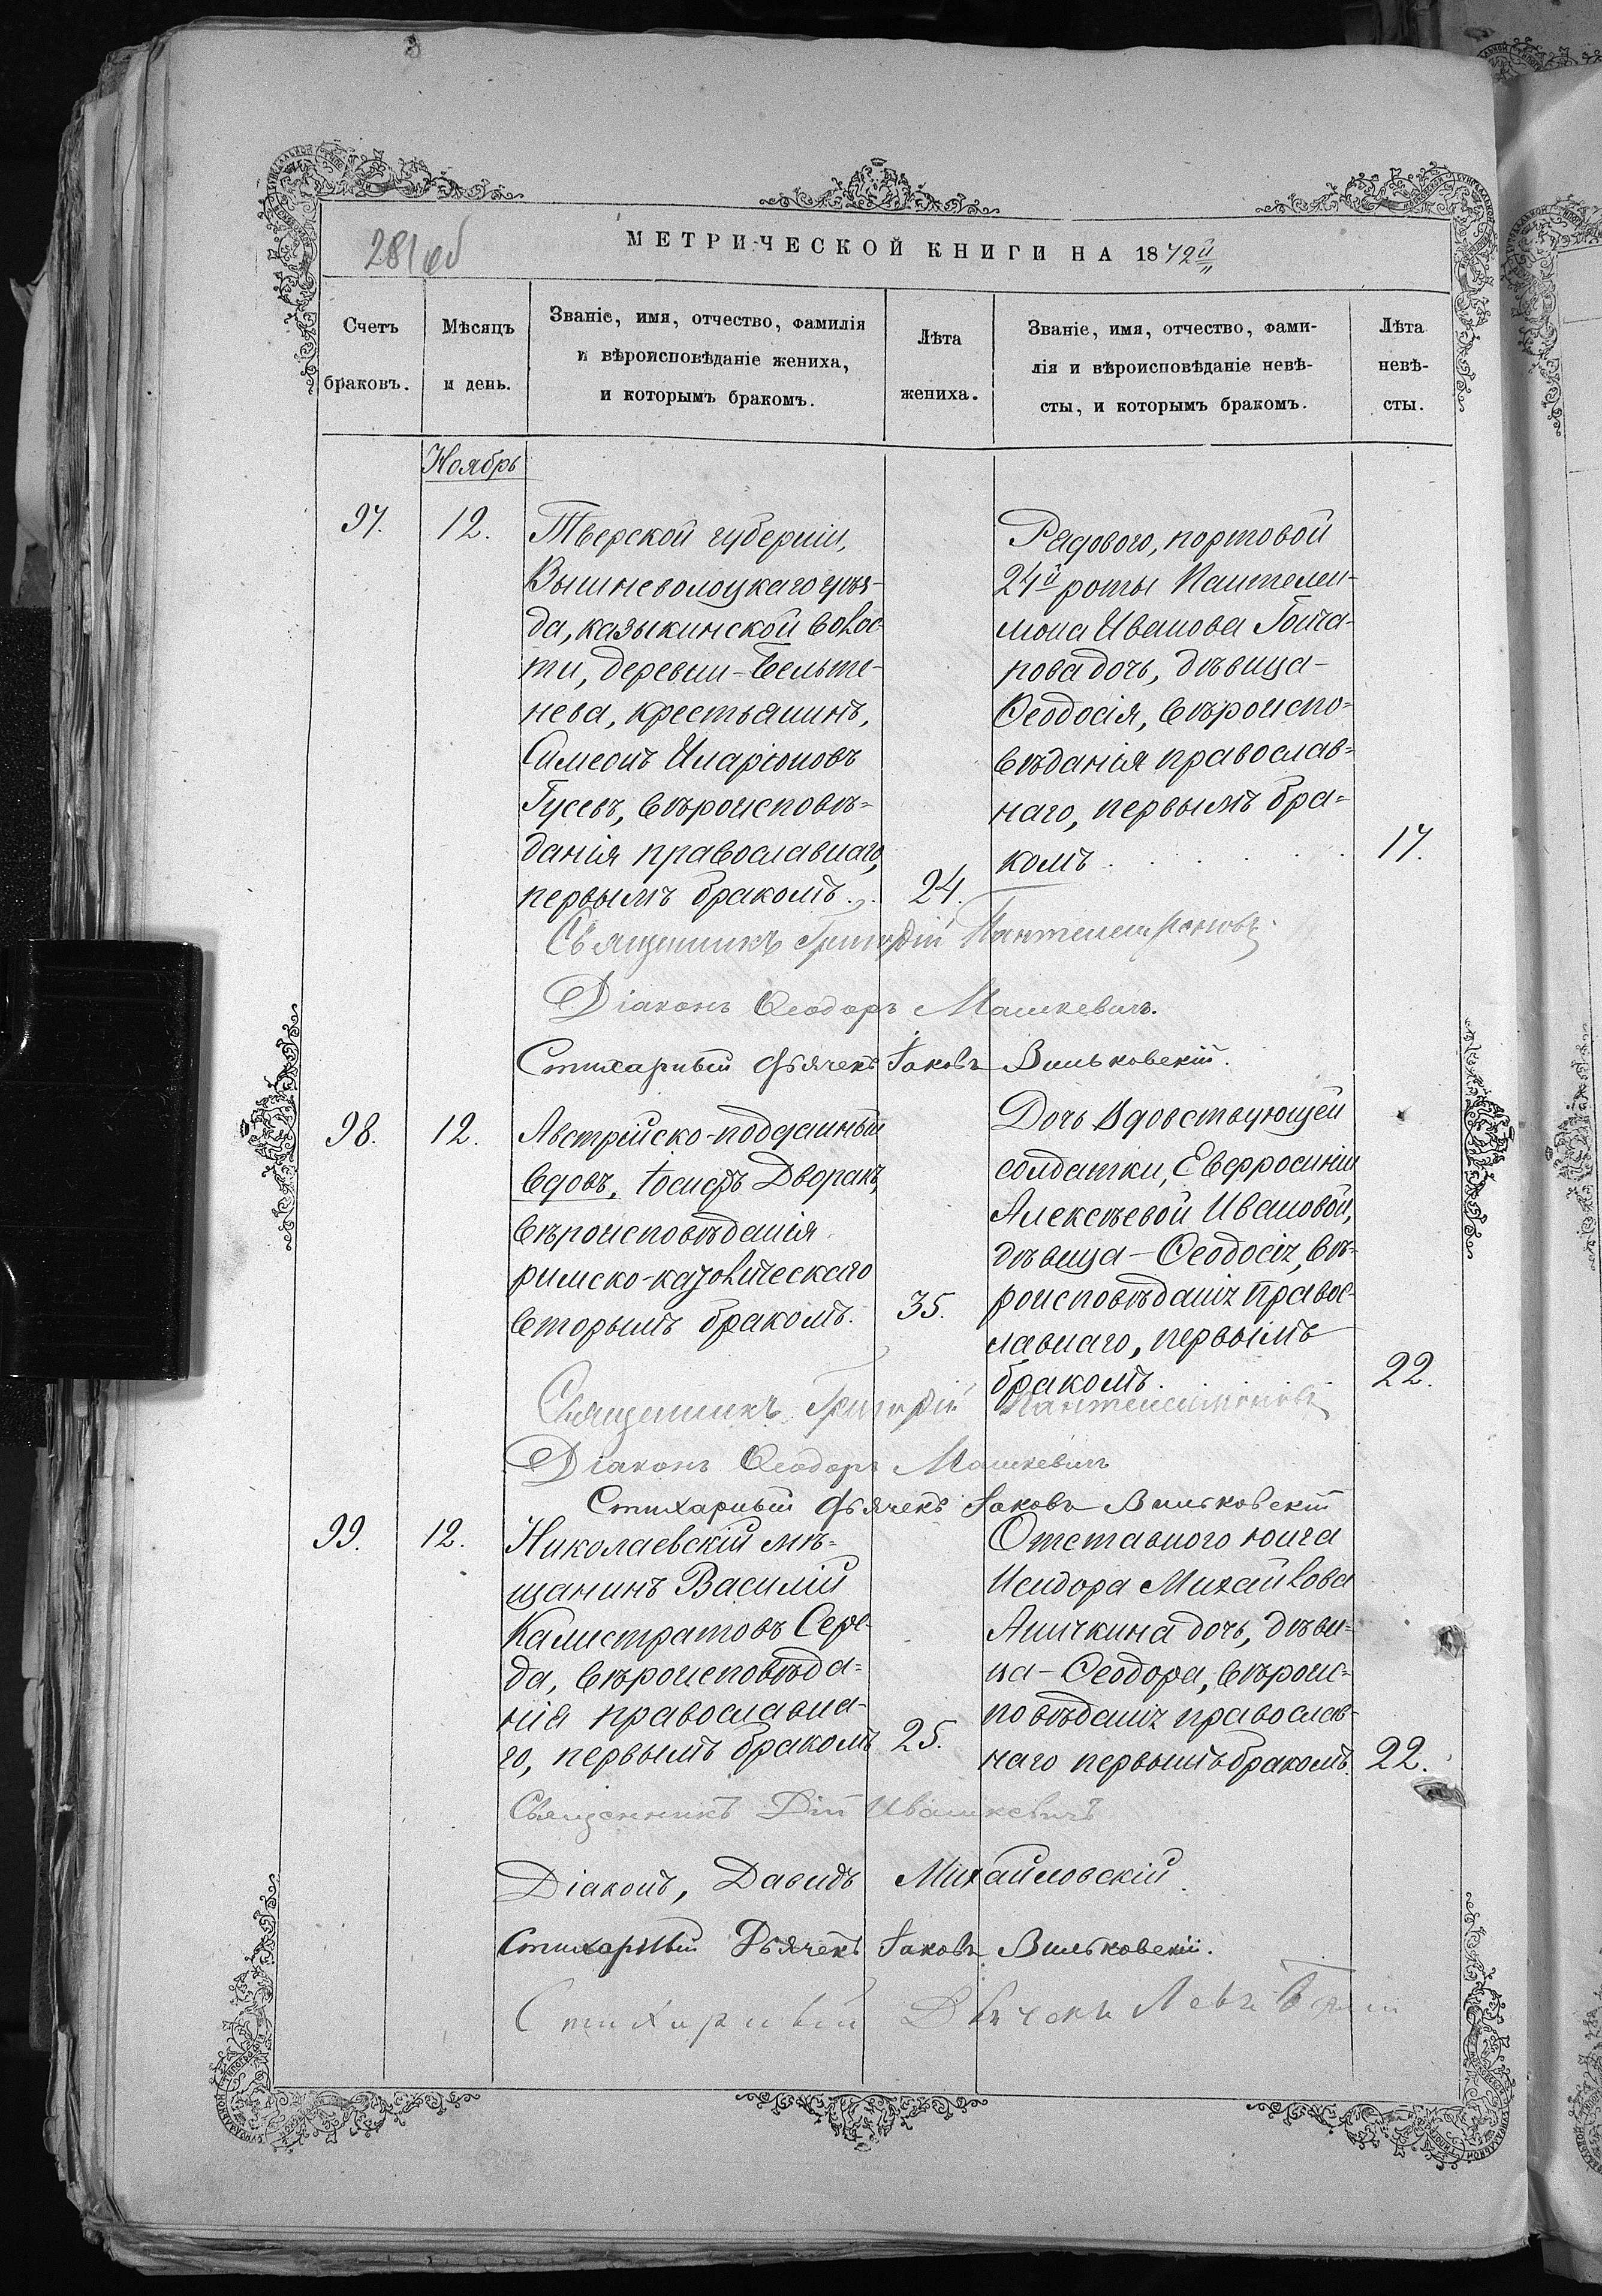 281 об
МЕТРИЧЕСКОЙ КНИГИ НА 1872й
Счетъ браковъ.
Мѣсяцъ и день.
Званіе, имя, отчество, фамилія
и вѣроисповѣданіе жениха,
и которымъ бракомъ.
Лѣта жениха.
Званіе, имя, отчество, фами-
лія и вѣроисповѣданіе невѣ-
сты, и которымъ бракомъ.
Лѣта невѣ-
сты.
Ноябрь
97.
12.
Тверской губерніи,
Вышневолоцкаго уѣз-
да, казыкинской волос-
ти, деревни-Бельте-
нева, крестьянинъ,
Симеонъ Иларіоновъ
Гусевъ, вѣроисповѣ-
данія православнаго,
первымъ бракомъ.
24.
Рядового, портовой
24й роты Пантелеи-
мона Иванова Гонча-
рова дочь, дѣвица-
Ѳеодосія, вѣроиспо-
вѣданія православ-
наго, первымъ бра-
комъ
17.
Священникъ Григорій Пантелеимоновъ
Діаконъ Ѳеодоръ Машкевичъ.
Стихарный Дьячекъ Іаковъ Вильковскій.
98.
12.
Австрійско-подданный
вдовъ, Іосифъ Дворакъ,
вѣроисповѣданія
римско-католическаго
вторымъ бракомъ.
35.
Дочь вдовствующей
солдатки, Евфросиніи
Алексѣевой Ивановой,
дѣвица-Ѳеодосія, вѣ-
роисповѣданія правос-
лавнаго, первымъ
бракомъ.
22.
Священникъ Григорій Пантелеимоновъ
Діаконъ Ѳеодоръ Машкевичъ
Стихарный Дьячекъ Іаковъ Вильковскій
99.
12.
Николаевскій мѣ-
щанинъ Василій
Калистратовъ Сере-
да, вѣроисповѣда-
нія православна-
го, первымъ бракомъ
25.
Отставного юнга
Исидора Михайлова
Аничкина дочь, дѣви-
ца-Ѳеодора, вѣроис-
повѣданія православ-
наго первымъ бракомъ.
22.
Священникъ Дій Ивашкевичъ
Діаконъ, Давидъ Михайловскій.
Стихарный Дьячекъ Іаковъ Вильковскій.
Стихарный Дьячекъ Левъ